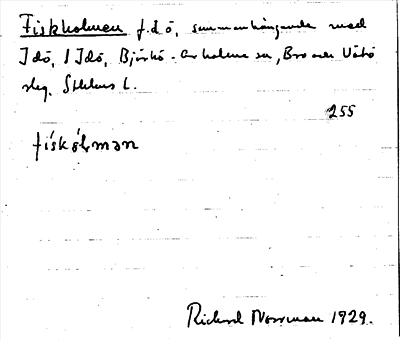 Fiskholmen f.d ö, sammanhängande med
Idö, 1 Idö, Björkö-Arholma sn, Bro och Vätö
slg, Sthlms l.
255
fiskòlman
Richard Norrman 1929.